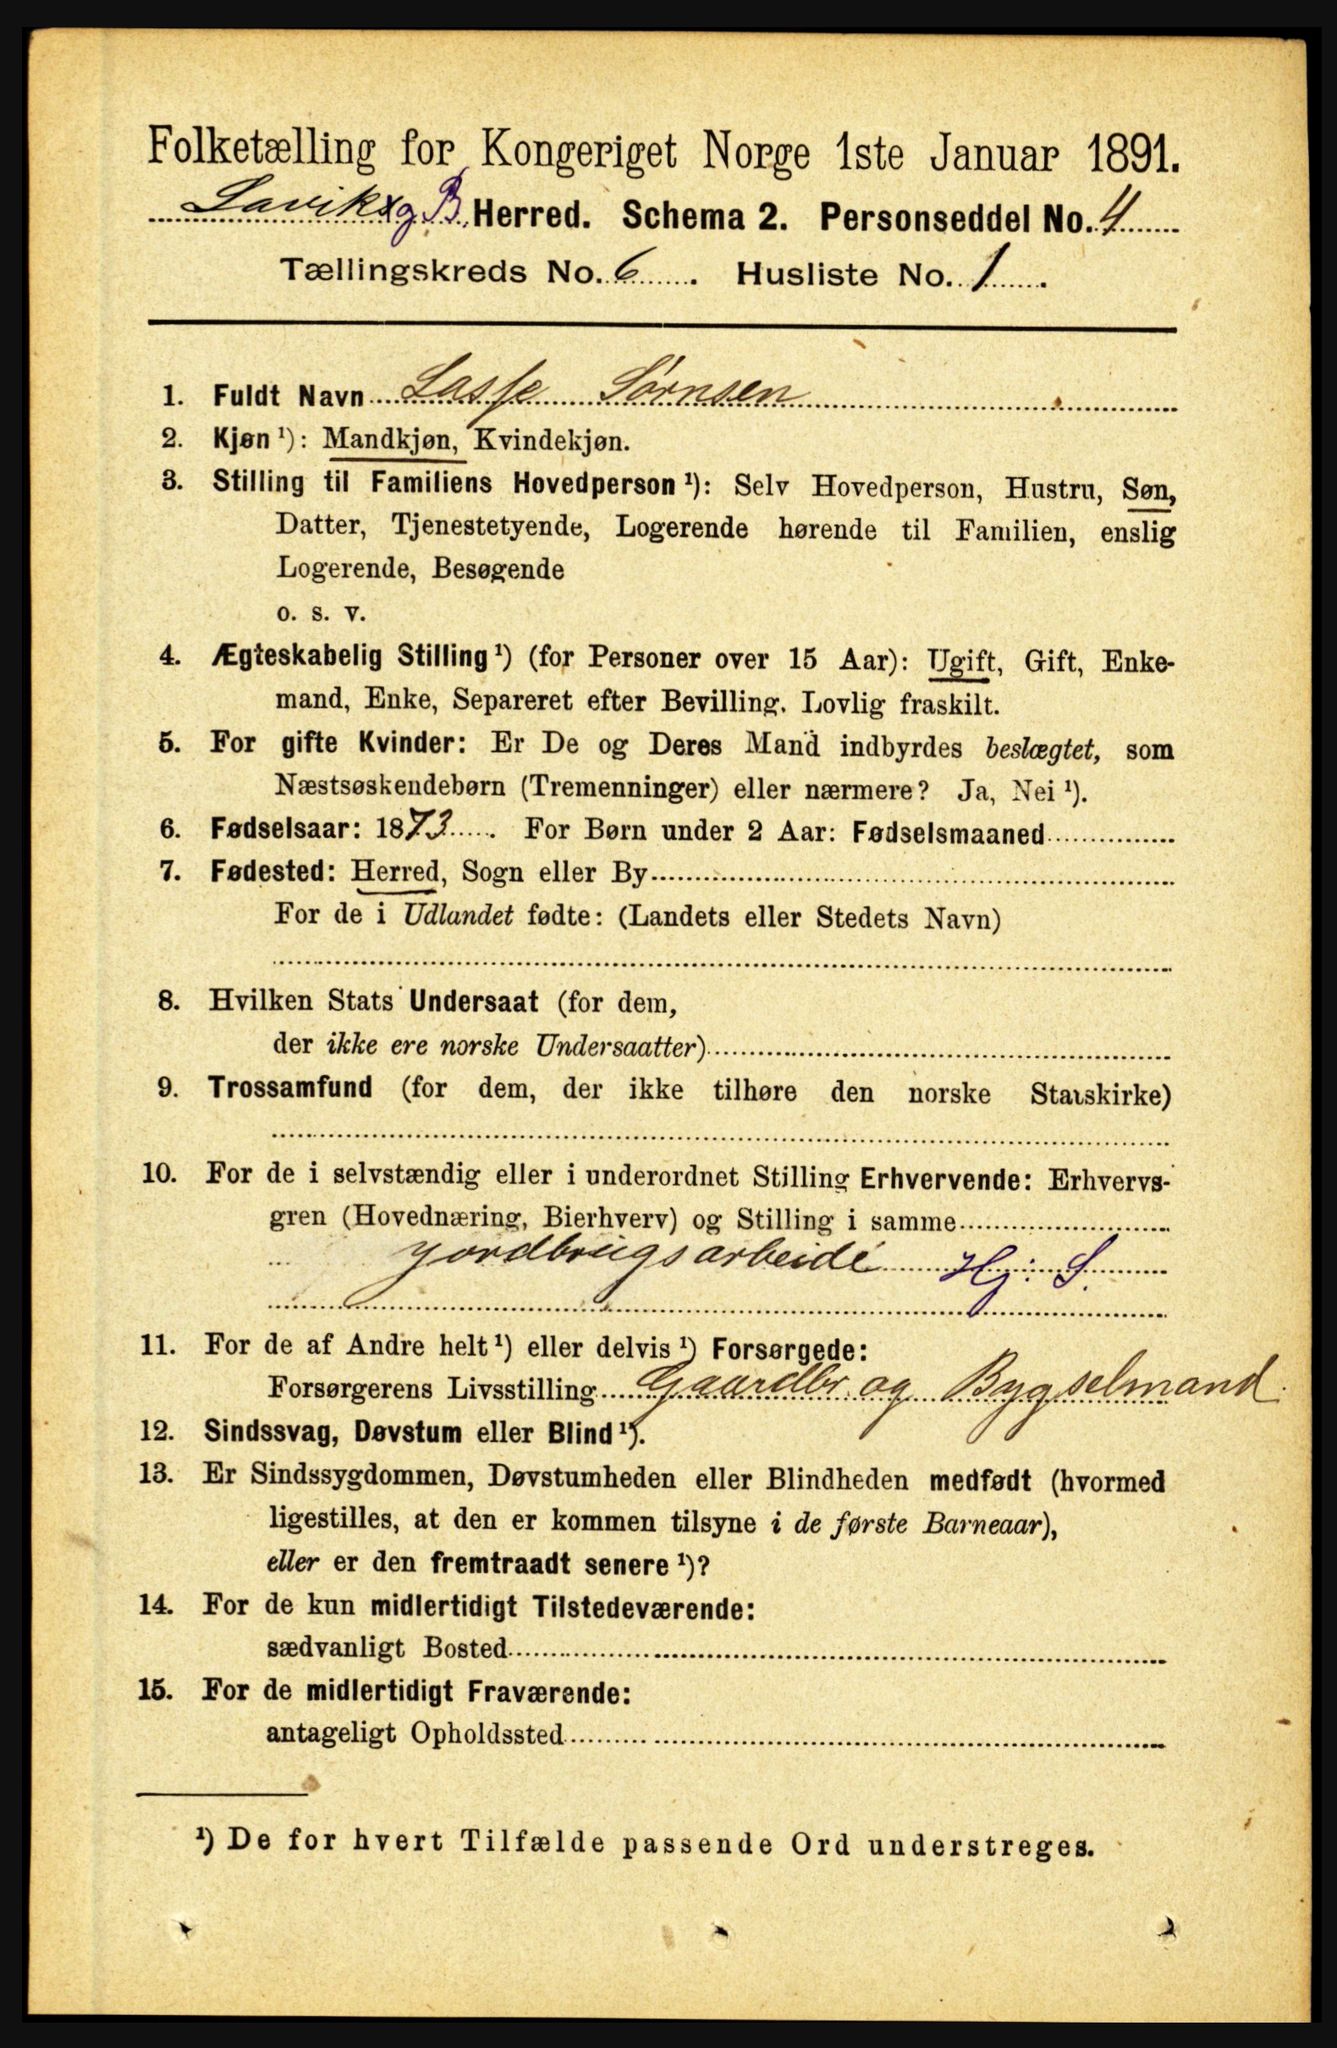 Folketælling for Kongeriget Norge 1ste Januar 1891.
Laviks og B. Herred. Schema 2. Personseddel No. 4
Tællingskreds No. 6. Husliste No. 1.
1. Fuldt Navn Lasse Sørnsen
2. Kjøn ¹): Mandkjøn, Kvindekjøn.
3. Stilling til Familiens Hovedperson ¹): Selv Hovedperson, Hustru, Søn,
Datter, Tjenestetyende, Logerende hørende til Familien, enslig
Logerende, Besøgende
o. s. v.
4. Ægteskabelig Stilling ¹) (for Personer over 15 Aar): Ugift, Gift, Enke-
mand, Enke, Separeret efter Bevilling. Lovlig fraskilt.
5. For gifte Kvinder: Er De og Deres Mand indbyrdes beslægtet, som
Næstsøskendebørn (Tremenninger) eller nærmere? Ja, Nei ¹).
6. Fødselsaar: 1873. For Børn under 2 Aar: Fødselsmaaned
7. Fødested: Herred, Sogn eller By
For de i Udlandet fødte: (Landets eller Stedets Navn)
8. Hvilken Stats Undersaat (for dem,
der ikke ere norske Undersaatter)
9. Trossamfund (for dem, der ikke tilhøre den norske Statskirke)
10. For de i selvstændig eller i underordnet Stilling Erhvervende: Erhvervs-
gren (Hovednæring, Bierhverv) og Stilling i samme
jordbrugsarbeide Hj: S.
11. For de af Andre helt ¹) eller delvis ¹) Forsørgede:
Forsørgerens Livsstilling Gaardbr. og Bygselmand.
12. Sindssvag, Døvstum eller Blind ¹).
13. Er Sindssygdommen, Døvstumheden eller Blindheden medfødt (hvormed
ligestilles, at den er kommen tilsyne i de første Barneaar),
eller er den fremtraadt senere ¹)?
14. For de kun midlertidigt Tilstedeværende:
sædvanligt Bosted
15. For de midlertidigt Fraværende:
antageligt Opholdssted
¹) De for hvert Tilfælde passende Ord understreges.